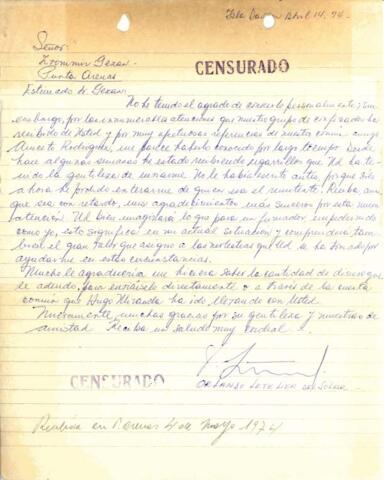 Isla Dawson Abril 14, 74.
Señor
Punta Arenas
CENSURADO
Estimado Sr.
No he tenido el agrado de conocerlo personalmente; sin
embargo, por las innumerables atenciones que nuestro grupo de confinados ha
recibido de Usted y por muy afectuosas referencias de nuestro común amigo
Aniceto Rodríguez, me parece haberlo conocido por largo tiempo. Desde
hace algunas semanas he estado recibiendo cigarrillos que Ud ha te-
nido la gentileza de enviarme. No le había escrito antes, porque sólo
ahora he podido enterarme de quien era el remitente. Reciba, aun
que sea con retardo, mis agradecimientos más sinceros por esta nueva
atención. Ud bien imaginará lo que para un fumador empedernido
como yo, esto significa en mi actual situación y comprenderá tam
bién el gran valor que asigno a las molestias que Ud. se ha tomado por
ayudarme en estas circunstancias.
Mucho le agradecería me hiciera saber la cantidad de dinero que
le adeudo, para enviárselo directamente o a través de la cuenta
común que Hugo Miranda ha ido llevando con Usted.
Nuevamente, muchas gracias por su gentileza y muestras de
amistad. Reciba un saludo muy cordial.
ORLANDO LETELIER DEL SOLAR
CENSURADO
Recibida en P. Arenas 4 de Mayo 1974